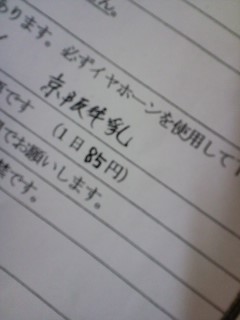 せん。
あります。必ずイヤホーンを使用して下
京阪牛乳
です (1日85円)
でお願いします。
禁です。